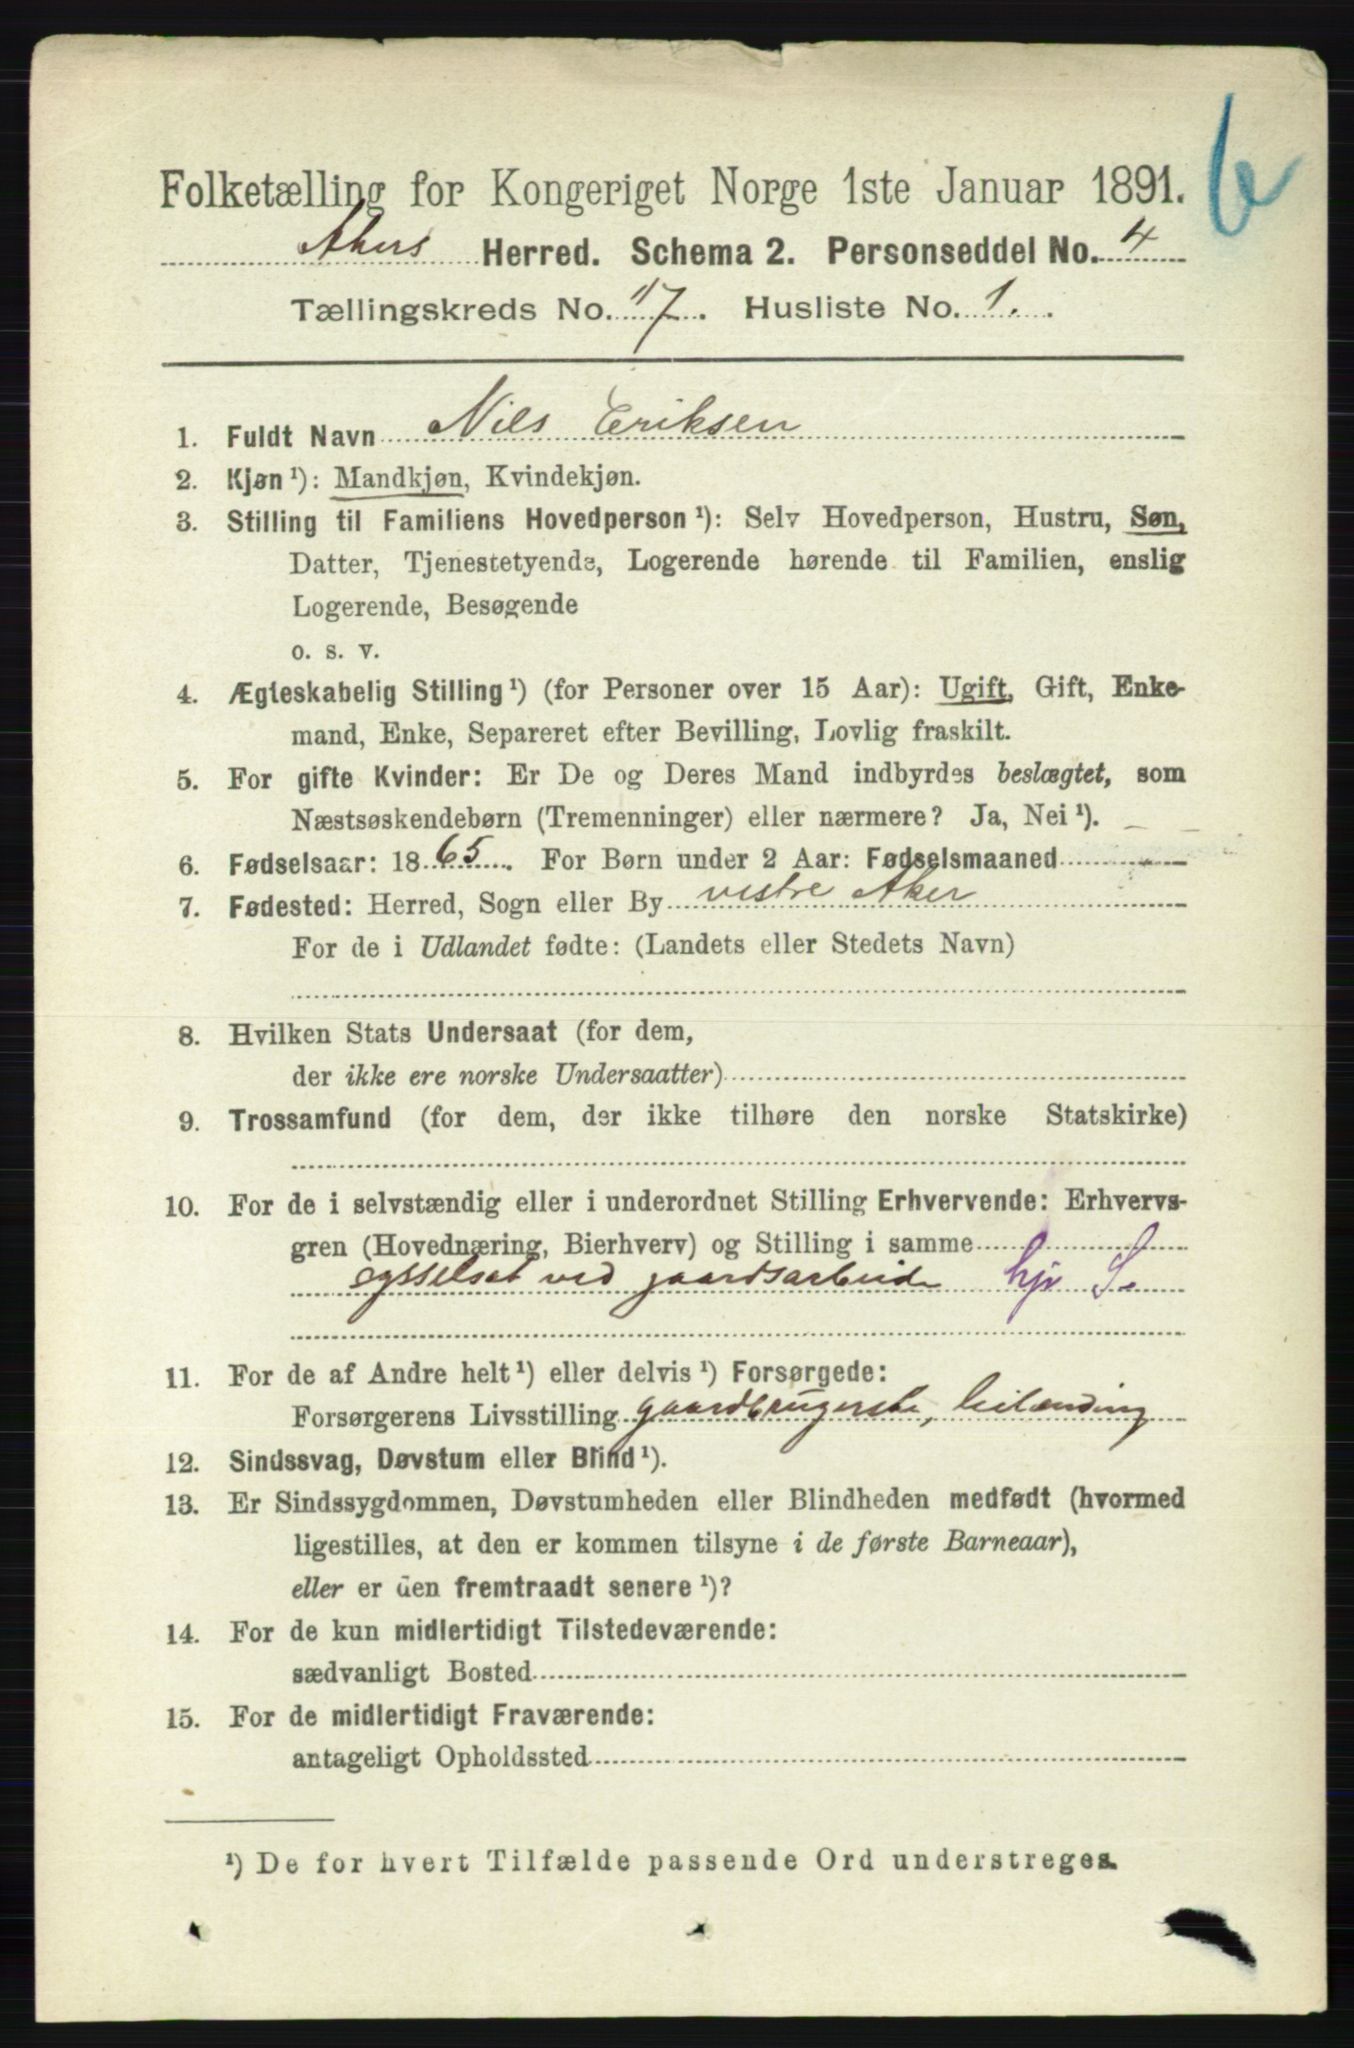 6
Folketælling for Kongeriget Norge 1ste Januar 1891.
Akers Herred. Schema 2. Personseddel No. 4
Tællingskreds No. 17. Husliste No. 1.
1. Fuldt Navn Nils Eriksen
2. Kjøn ¹): Mandkjøn, Kvindekjøn.
3. Stilling til Familiens Hovedperson ¹): Selv Hovedperson, Hustru, Søn,
Datter, Tjenestetyende, Logerende hørende til Familien, enslig
Logerende, Besøgende
o. s. v.
4. Ægteskabelig Stilling ¹) (for Personer over 15 Aar): Ugift, Gift, Enke-
mand, Enke, Separeret efter Bevilling, Lovlig fraskilt.
5. For gifte Kvinder: Er De og Deres Mand indbyrdes beslægtet, som
Næstsøskendebørn (Tremenninger) eller nærmere? Ja, Nei ¹).
6. Fødselsaar: 1865. For Børn under 2 Aar: Fødselsmaaned
7. Fødested: Herred, Sogn eller By vestre Aker
For de i Udlandet fødte: (Landets eller Stedets Navn)
8. Hvilken Stats Undersaat (for dem,
der ikke ere norske Undersaatter)
9. Trossamfund (for dem, der ikke tilhøre den norske Statskirke)
10. For de i selvstændig eller i underordnet Stilling Erhvervende: Erhvervs-
gren (Hovednæring, Bierhverv) og Stilling i samme
sysselsat ved gaardsarbeide hjv S.
11. For de af Andre helt ¹) eller delvis ¹) Forsørgede:
Forsørgerens Livsstilling gaardbrugerske, leilænding
12. Sindssvag, Døvstum eller Blind ¹).
13. Er Sindssygdommen, Døvstumheden eller Blindheden medfødt (hvormed
ligestilles, at den er kommen tilsyne i de første Barneaar),
eller er den fremtraadt senere ¹)?
14. For de kun midlertidigt Tilstedeværende:
sædvanligt Bosted
15. For de midlertidigt Fraværende:
antageligt Opholdssted
¹) De for hvert Tilfælde passende Ord understreges.